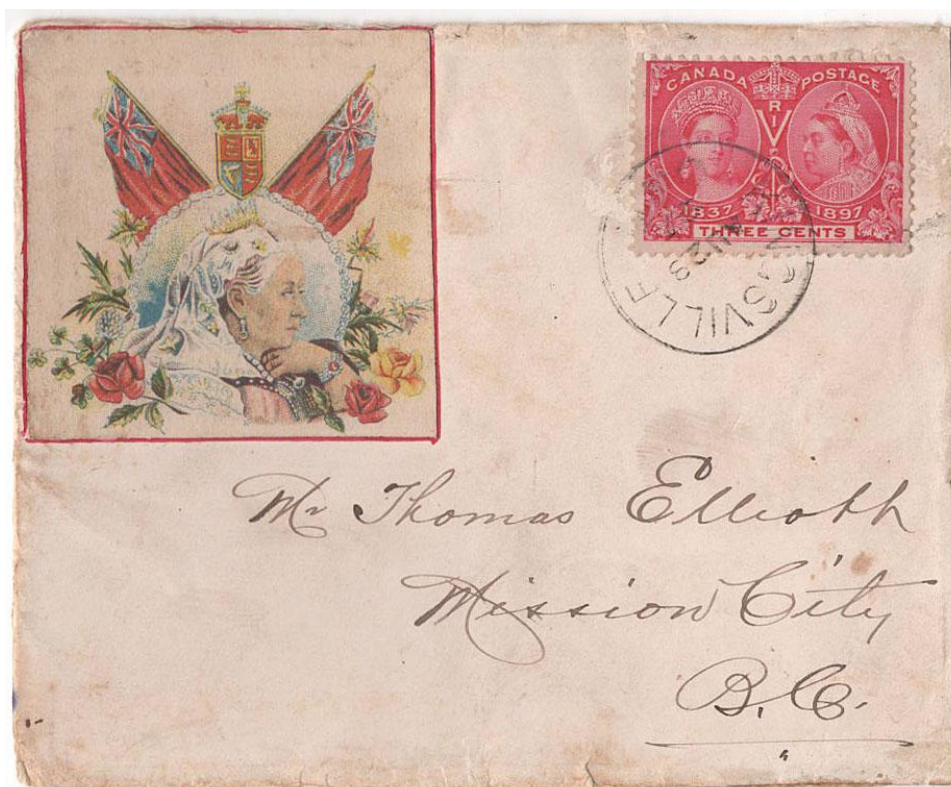 CANADA POSTAGE
V R I
1837 1897
THREE CENTS
Mr Thomas Elliott
Mission City
B.C.